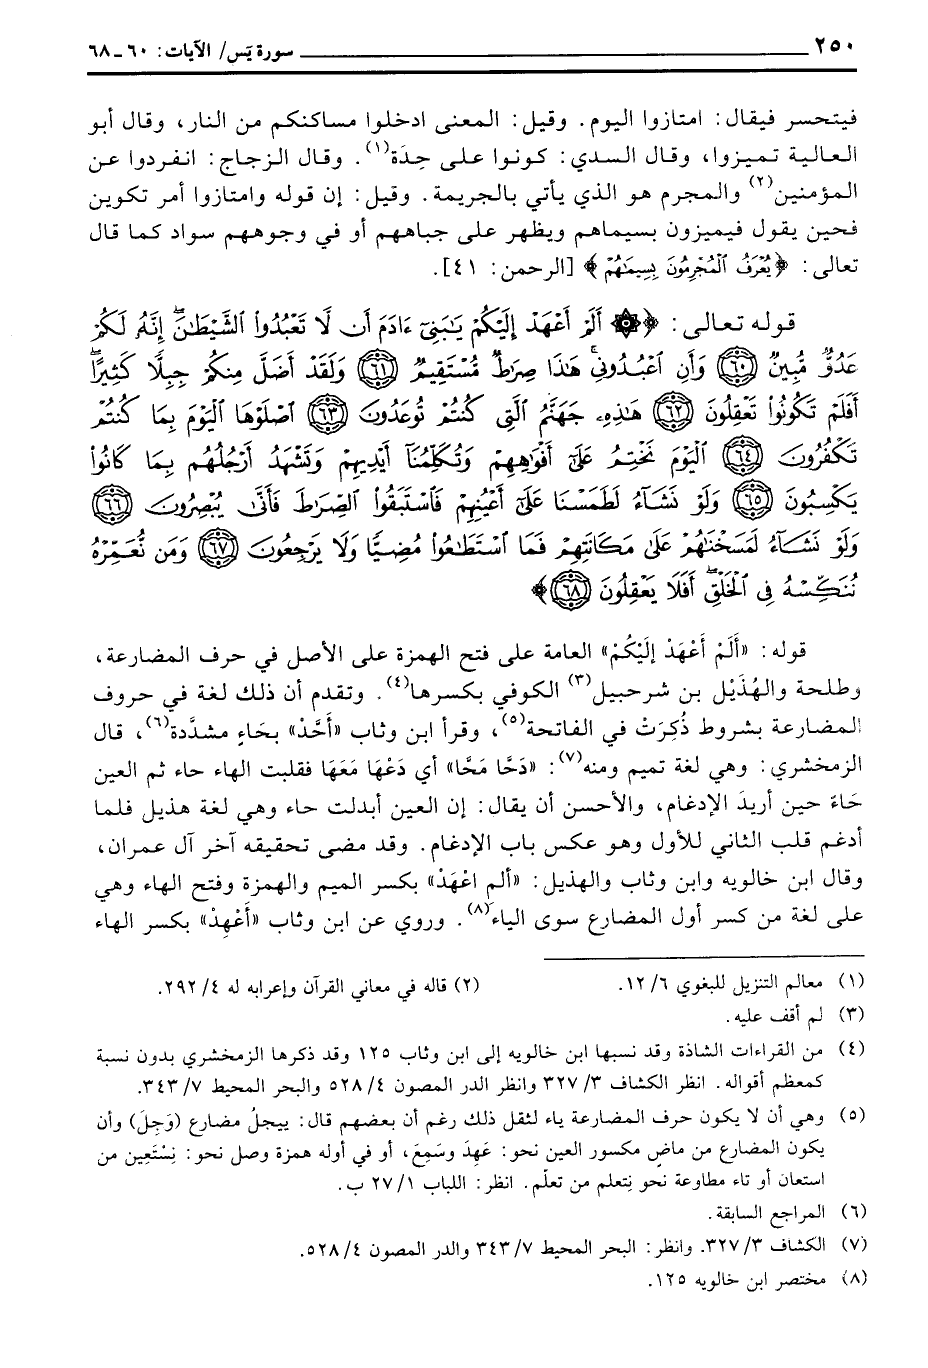 ٢٥٠ سورة يَس/ الآيات: ٦٠ ـ ٦٨
فيتحسر فيقال: امتازوا اليوم. وقيل: المعنى ادخلوا مساكنكم من النار، وقال أبو
العالية تميزوا، وقال السدي: كونوا على حِدَة(١). وقال الزجاج: انفردوا عن
المؤمنين(٢) والمجرم هو الذي يأتي بالجريمة. وقيل: إن قوله وامتازوا أمر تكوين
فحين يقول فيميزون بسيماهم ويظهر على جباههم أو في وجوههم سواد كما قال
تعالى: ﴿يُعْرَفُ الْمُجْرِمُونَ بِسِيمَاهُمْ﴾ [الرحمن: ٤١].
قوله تعالى: ﴿۞ أَلَمْ أَعْهَدْ إِلَيْكُمْ يَٰبَنِىٓ ءَادَمَ أَن لَّا تَعْبُدُوا۟ الشَّيْطَٰنَ ۖ إِنَّهُۥ لَكُمْ
عَدُوٌّ مُّبِينٌ ﴿٦٠﴾ وَأَنِ اعْبُدُونِى ۚ هَٰذَا صِرَٰطٌ مُّسْتَقِيمٌ ﴿٦١﴾ وَلَقَدْ أَضَلَّ مِنكُمْ جِبِلًّا كَثِيرًا ۖ
أَفَلَمْ تَكُونُوا۟ تَعْقِلُونَ ﴿٦٢﴾ هَٰذِهِۦ جَهَنَّمُ الَّتِى كُنتُمْ تُوعَدُونَ ﴿٦٣﴾ اصْلَوْهَا الْيَوْمَ بِمَا كُنتُمْ
تَكْفُرُونَ ﴿٦٤﴾ الْيَوْمَ نَخْتِمُ عَلَىٰٓ أَفْوَٰهِهِمْ وَتُكَلِّمُنَآ أَيْدِيهِمْ وَتَشْهَدُ أَرْجُلُهُم بِمَا كَانُوا۟
يَكْسِبُونَ ﴿٦٥﴾ وَلَوْ نَشَآءُ لَطَمَسْنَا عَلَىٰٓ أَعْيُنِهِمْ فَاسْتَبَقُوا۟ الصِّرَٰطَ فَأَنَّىٰ يُبْصِرُونَ ﴿٦٦﴾
وَلَوْ نَشَآءُ لَمَسَخْنَٰهُمْ عَلَىٰ مَكَانَتِهِمْ فَمَا اسْتَطَٰعُوا۟ مُضِيًّا وَلَا يَرْجِعُونَ ﴿٦٧﴾ وَمَن نُّعَمِّرْهُ
نُنَكِّسْهُ فِى الْخَلْقِ ۖ أَفَلَا يَعْقِلُونَ ﴿٦٨﴾﴾
قوله: «أَلَمْ أَعْهَدْ إلَيْكُمْ» العامة على فتح الهمزة على الأصل في حرف المضارعة،
وطلحة والهُذَيْل بن شرحبيل(٣) الكوفي بكسرها(٤). وتقدم أن ذلك لغة في حروف
المضارعة بشروط ذُكِرَتْ في الفاتحة(٥)، وقرأ ابن وثاب «أَحَّدْ» بحَاءٍ مشدَّدة(٦)، قال
الزمخشري: وهي لغة تميم ومنه(٧): «دَحَّا مَحَّا» أي دَعْهَا مَعَهَا فقلبت الهاء حاء ثم العين
حَاءً حين أريدَ الإدغام، والأحسن أن يقال: إن العين أبدلت حاء وهي لغة هذيل فلما
أدغم قلب الثاني للأول وهو عكس باب الإدغام. وقد مضى تحقيقه آخر آل عمران،
وقال ابن خالويه وابن وثاب والهذيل: «ألم اعْهَدْ» بكسر الميم والهمزة وفتح الهاء وهي
على لغة من كسر أول المضارع سوى الياء(٨). وروي عن ابن وثاب «أَعْهِدْ» بكسر الهاء
(١) معالم التنزيل للبغوي ٦/ ١٢. (٢) قاله في معاني القرآن وإعرابه له ٤/ ٢٩٢.
(٣) لم أقف عليه.
(٤) من القراءات الشاذة وقد نسبها ابن خالويه إلى ابن وثاب ١٢٥ وقد ذكرها الزمخشري بدون نسبة
كمعظم أقواله. انظر الكشاف ٣/ ٣٢٧ وانظر الدر المصون ٤/ ٥٢٨ والبحر المحيط ٧/ ٣٤٣.
(٥) وهي أن لا يكون حرف المضارعة ياء لثقل ذلك رغم أن بعضهم قال: ييجلُ مضارع (وَجِلَ) وأن
يكون المضارع من ماضٍ مكسور العين نحو: عَهِدَ وسَمِعَ، أو في أوله همزة وصل نحو: نِسْتَعِين من
استعان أو تاء مطاوعة نحو نِتعلم من تعلّم. انظر: اللباب ١/ ٢٧ ب.
(٦) المراجع السابقة.
(٧) الكشاف ٣/ ٣٢٧. وانظر: البحر المحيط ٧/ ٣٤٣ والدر المصون ٤/ ٥٢٨.
(٨) مختصر ابن خالويه ١٢٥.